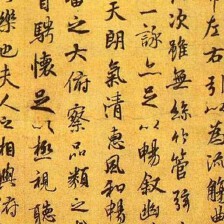 左右引以為流
次雖無絲竹管弦
一詠亦足以暢敘幽
天朗氣清惠風和暢
宙之大俯察品類之
目騁懷足以極視聽
樂也夫人之相與俯